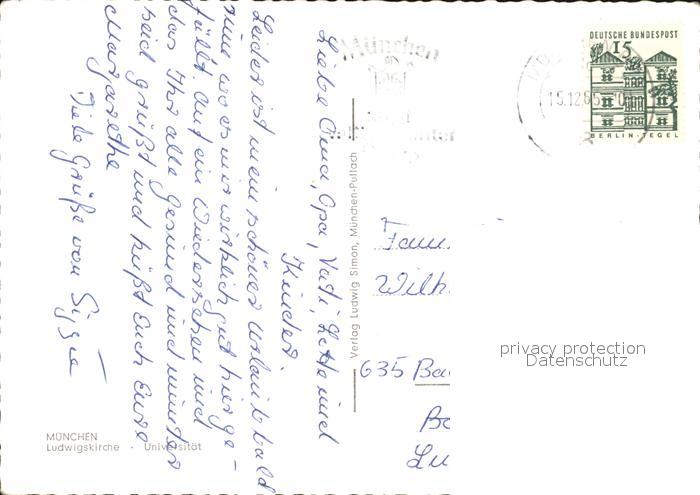 Liebe Oma, Opa, Vati, und
Kinder.
Leider ist mein schöner Urlaub bald
um wo es mir wirklich gut hierge-
fällt. Auf ein Wiedersehen und
das Ihr alle gesund und munter
seid grüßt und küßt Euch Eure
Margarethe
Viele Grüße von
MÜNCHEN
Ludwigskirche · Universität
Verlag Ludwig Simon, München-Pullach
München
15.12.65
DEUTSCHE BUNDESPOST
15
BERLIN-TEGEL
Fam.
Wilh.
635 Ba
privacy protection
Datenschutz